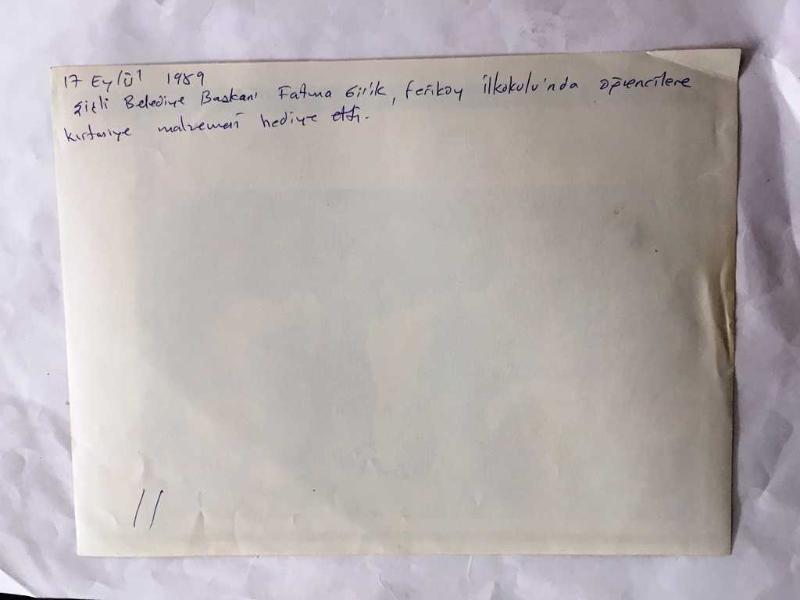 17 Eylül 1989
Şişli Belediye Başkanı Fatma Girik, Feriköy ilkokulu'nda öğrencilere
kırtasiye malzemesi hediye etti.
11